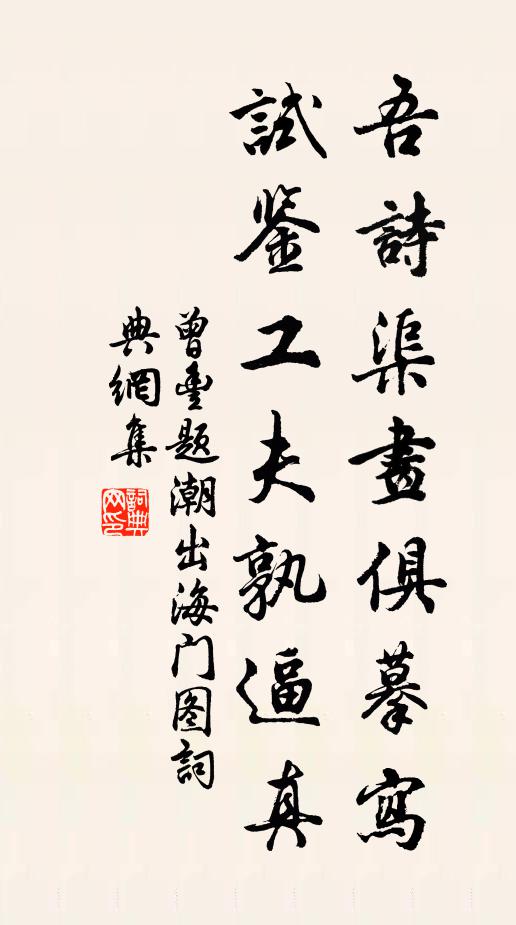 吾詩渠畫俱摹寫
試鉴工夫孰逼真
曾豊题潮出海门图詞
典網集
詞典
网印